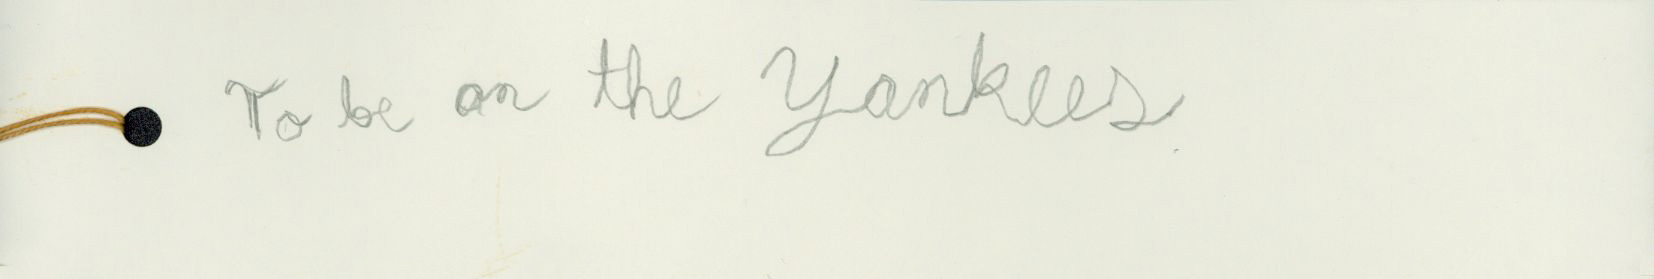 To be on the Yankees.